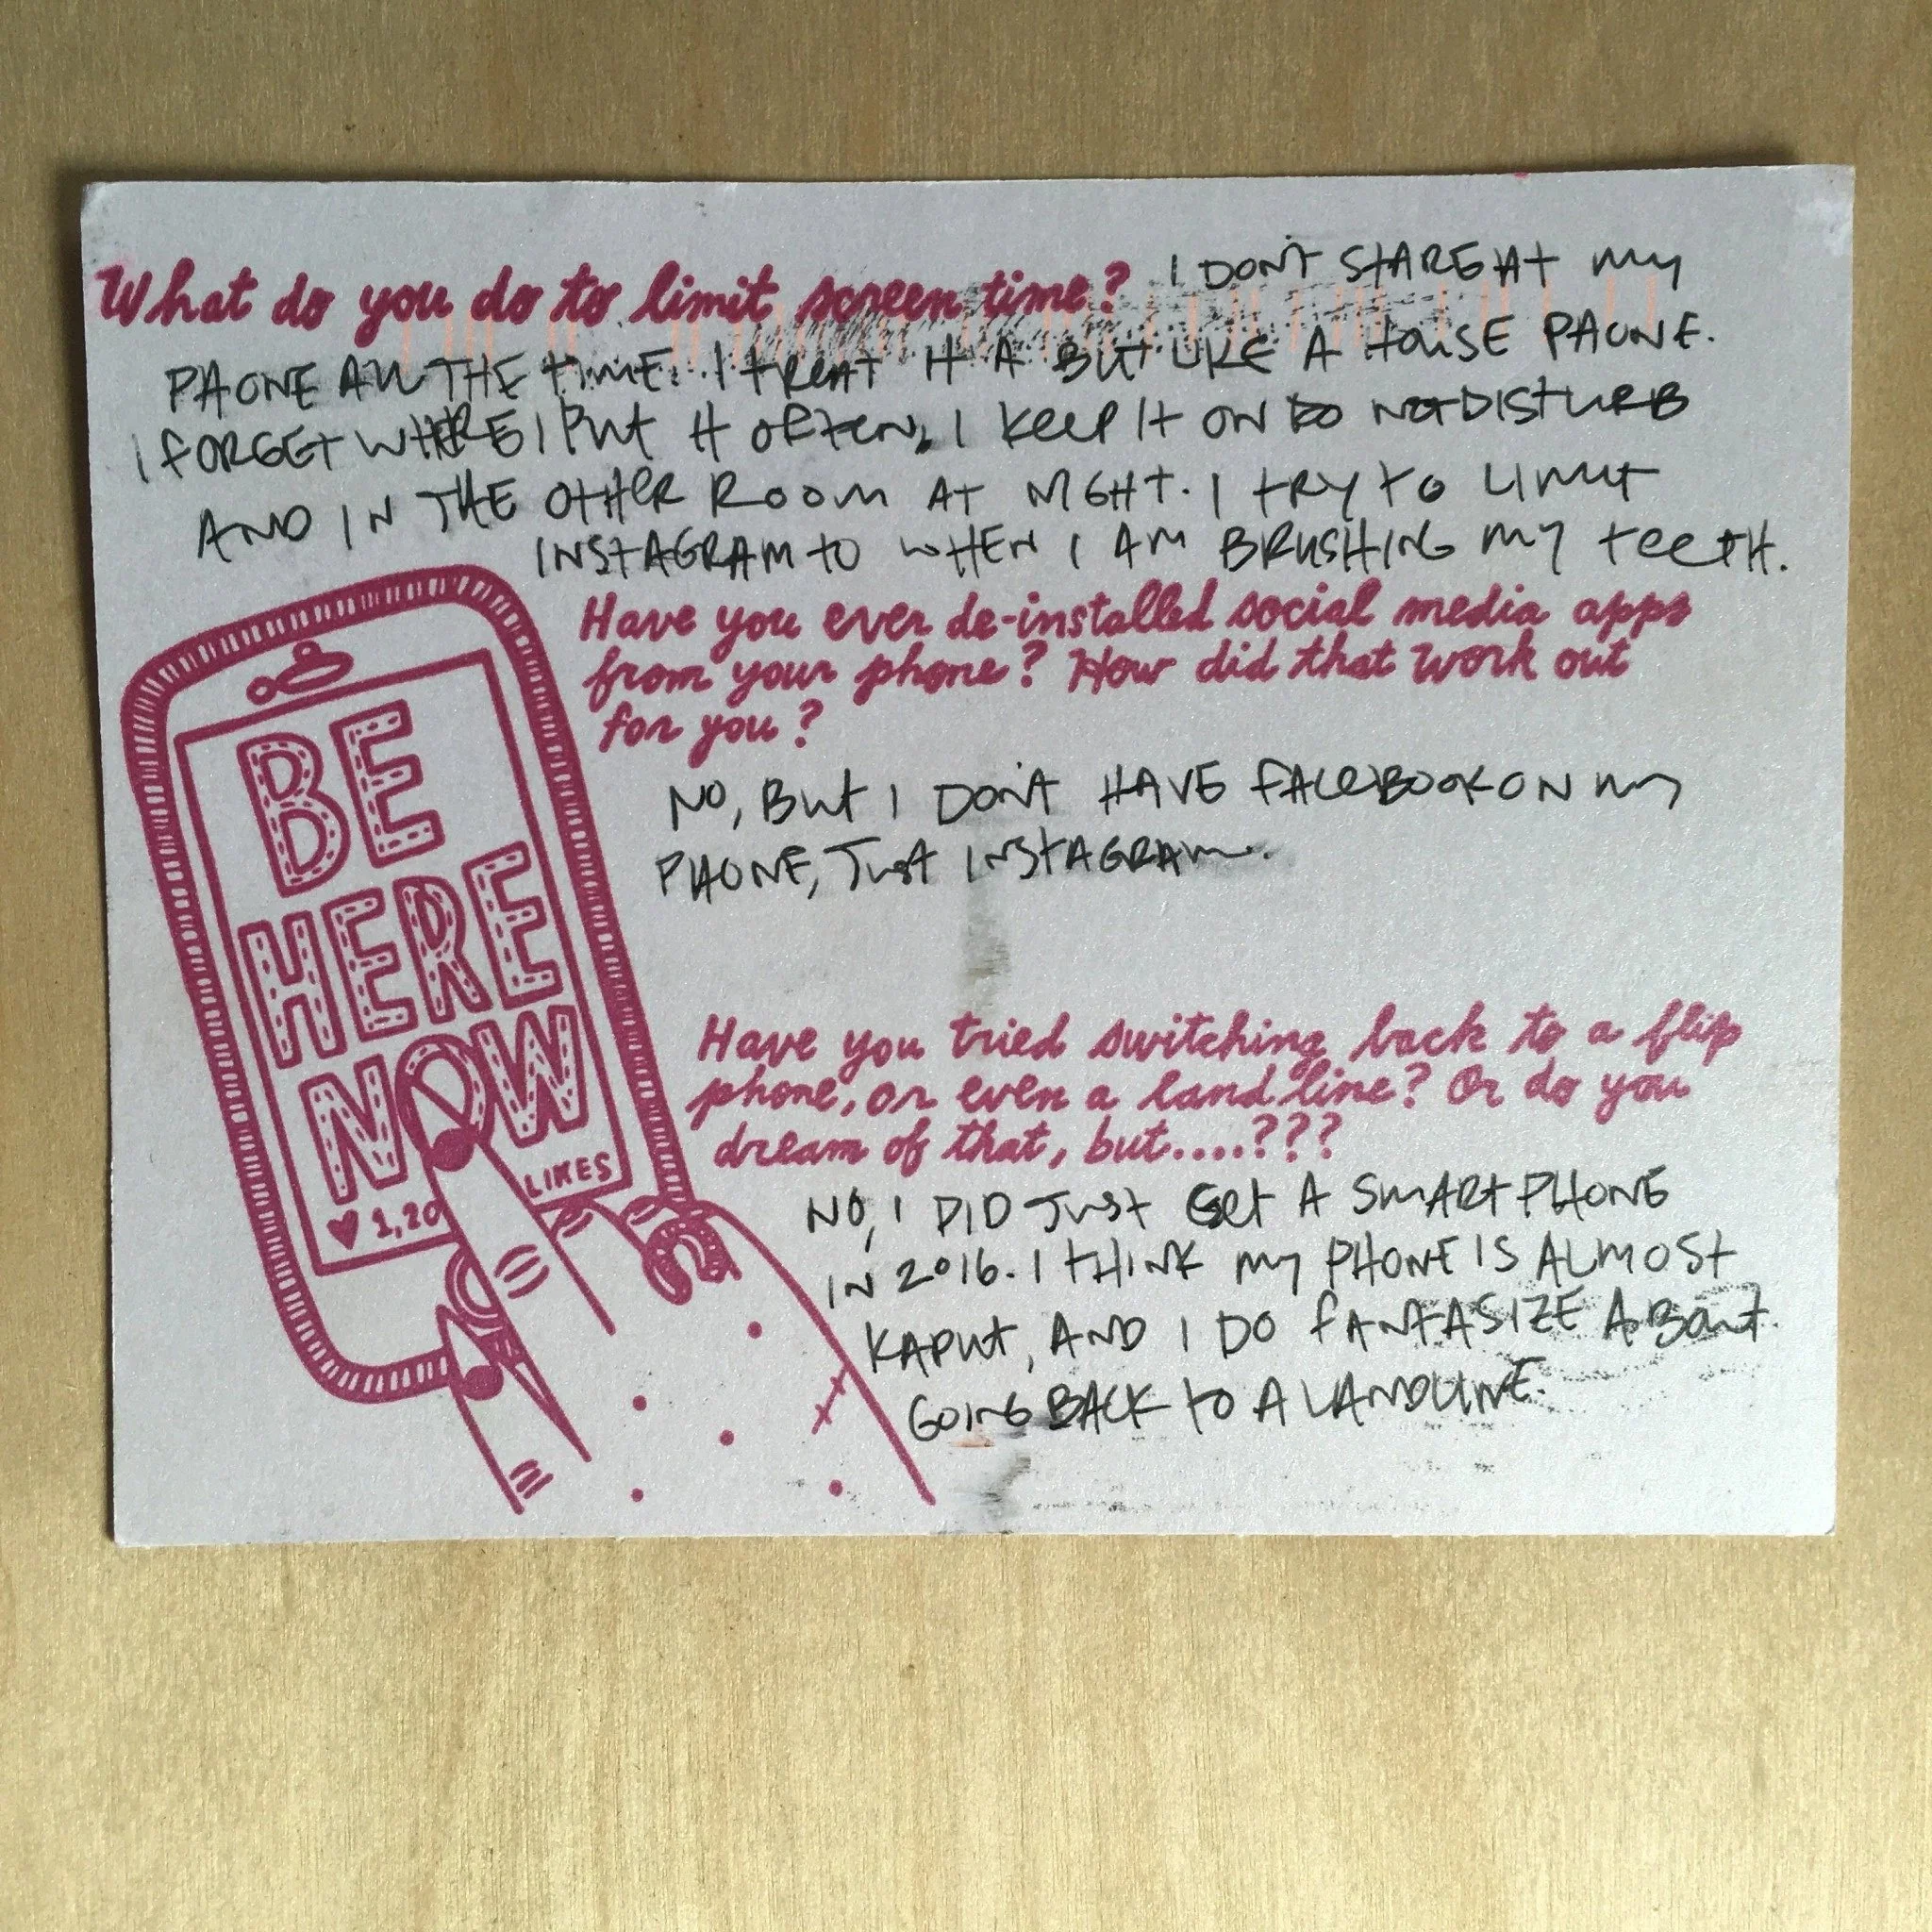 What do you do to limit screen time? I DON'T STARE AT MY
PHONE ALL THE TIME. I TREAT IT A BIT LIKE A HOUSE PHONE.
I FORGET WHERE I PUT IT OFTEN, I KEEP IT ON DO NOT DISTURB
AND IN THE OTHER ROOM AT NIGHT. I TRY TO LIMIT
INSTAGRAM TO WHEN I AM BRUSHING MY TEETH.
Have you ever de-installed social media apps
from your phone? How did that work out
for you?
NO, BUT I DON'T HAVE FACEBOOK ON MY
PHONE, JUST INSTAGRAM.
BE
HERE
NOW
♥ 1,20 LIKES
Have you tried switching back to a flip
phone, or even a land line? Or do you
dream of that, but....???
NO, I DID JUST GET A SMARTPHONE
IN 2016. I THINK MY PHONE IS ALMOST
KAPUT, AND I DO FANTASIZE ABOUT
GOING BACK TO A LANDLINE.